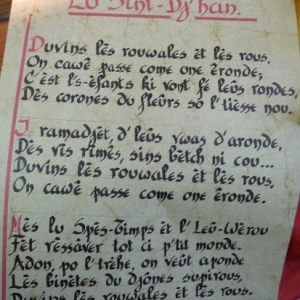 Lu Sint-Dj'han.
Duvins lès rouwales èt lès rous,
On cawè passe come one éronde;
C'est l's-èfants ki vont fé leûs rondes,
Dès corones du fleûrs so l'tièsse nou.
I ramadjèt, d'leûs vwas d'aronde,
Dès vîs rîmês, sins bètch ni cou...
Duvins lès rouwales èt lès rous,
On cawè passe come one éronde.
Mès lu Spès-Timps èt l'Leû-Wèrou
Fèt rèssâver tot ci p'tit monde.
Adon, po l'trèhe, on veût aponde
Lès binètes du djônes supirous,
Duvins lès rouwales èt lès rous.